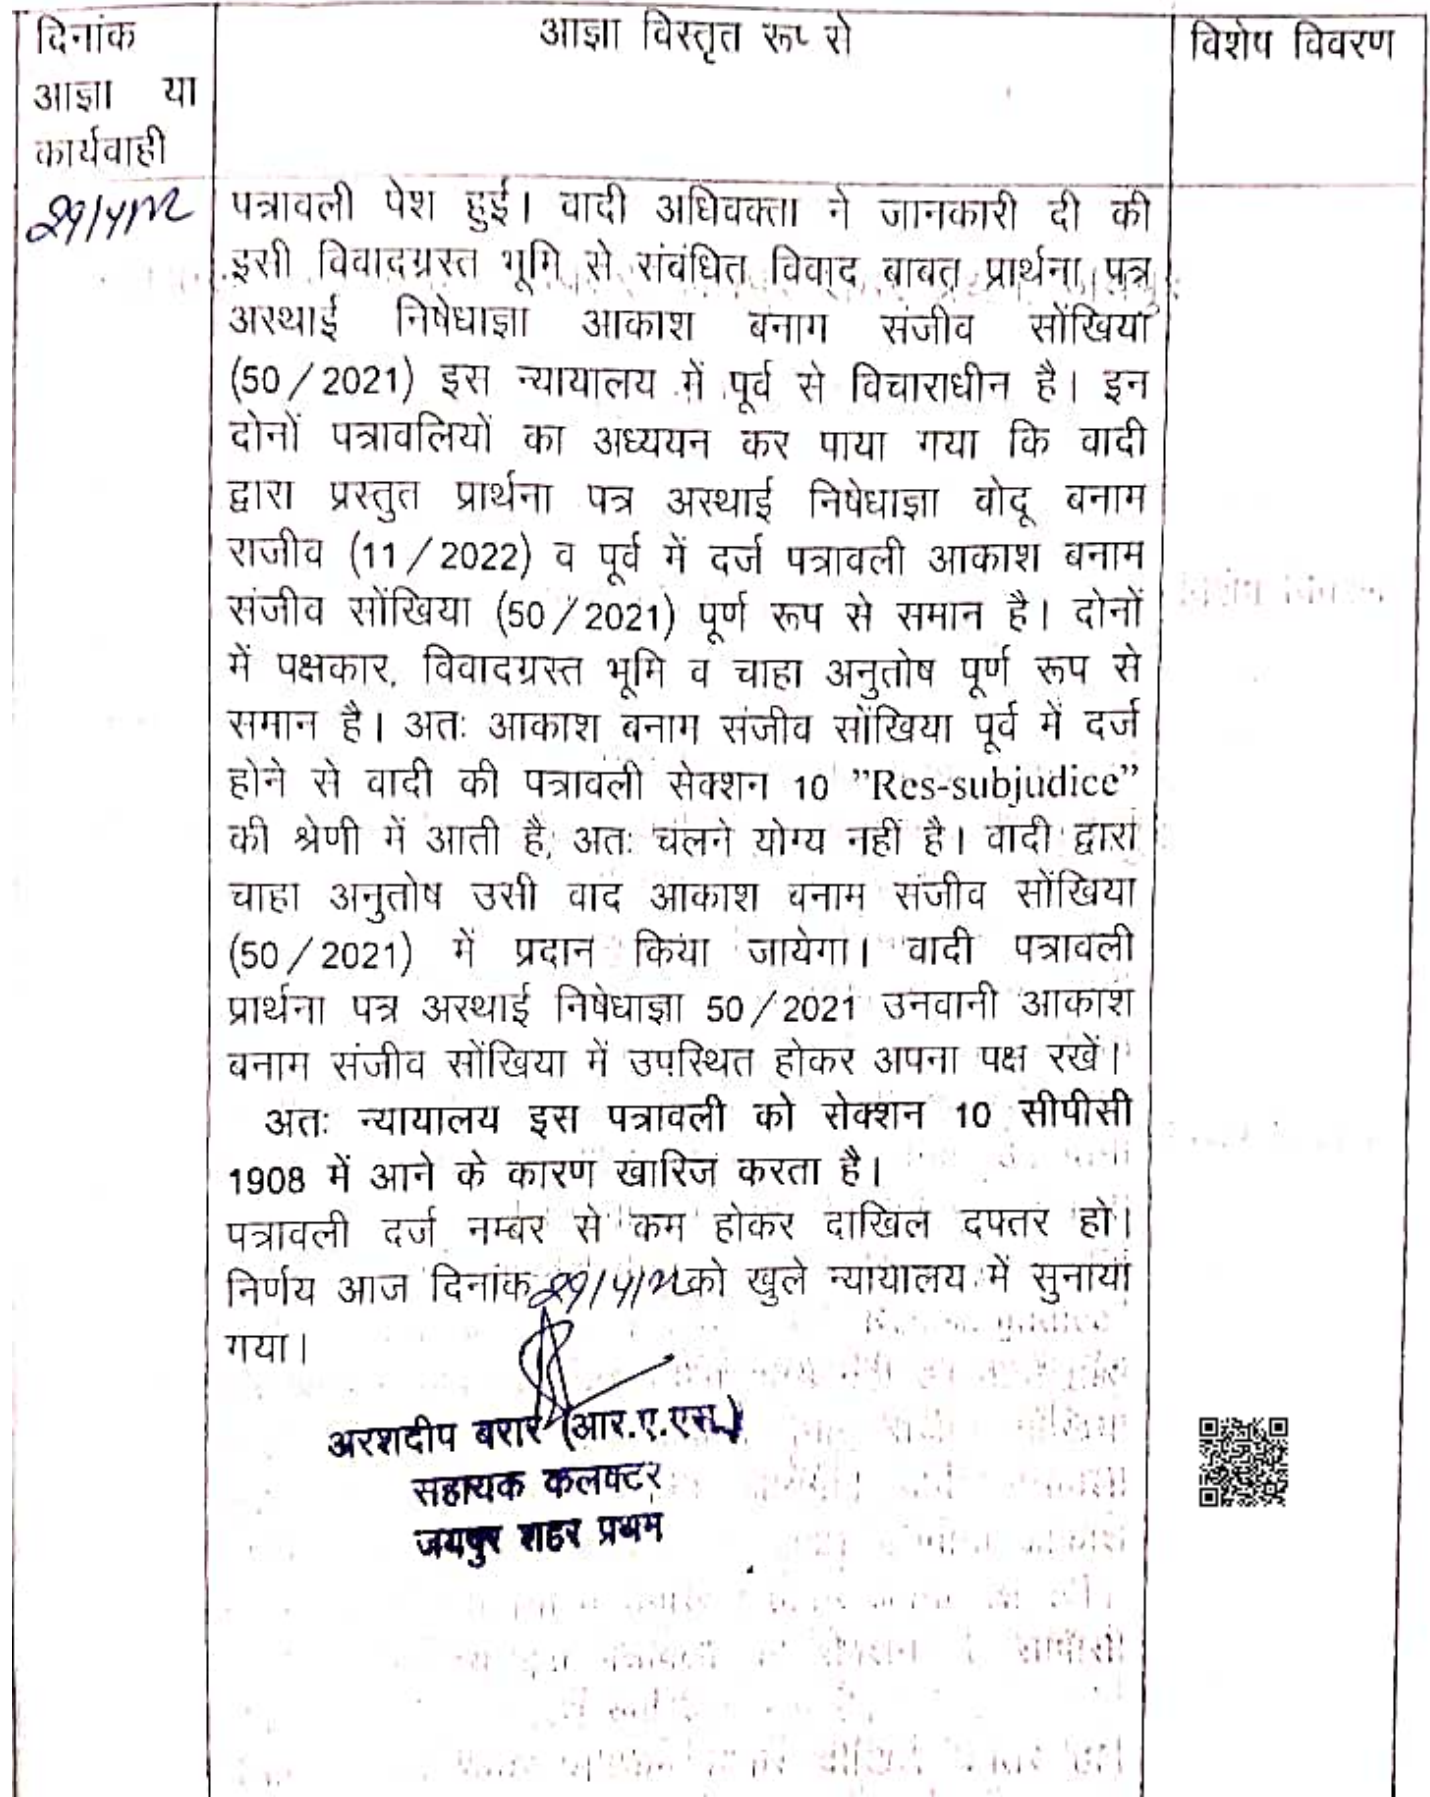 दिनांक
आज्ञा या
कार्यवाही
आज्ञा विस्तृत रूप से
विशेष विवरण
29/4/22
पत्रावली पेश हुई। वादी अधिवक्ता ने जानकारी दी की
इसी विवादग्रस्त भूमि से संबंधित विवाद बाबत प्रार्थना पत्र
अस्थाई निषेधाज्ञा आकाश बनाम संजीव सोंखिया
(50/2021) इस न्यायालय में पूर्व से विचाराधीन है। इन
दोनों पत्रावलियों का अध्ययन कर पाया गया कि वादी
द्वारा प्रस्तुत प्रार्थना पत्र अस्थाई निषेधाज्ञा वोदू बनाम
राजीव (11/2022) व पूर्व में दर्ज पत्रावली आकाश बनाम
संजीव सोंखिया (50/2021) पूर्ण रूप से समान है। दोनों
में पक्षकार, विवादग्रस्त भूमि व चाहा अनुतोष पूर्ण रूप से
समान है। अतः आकाश बनाम संजीव सोंखिया पूर्व में दर्ज
होने से वादी की पत्रावली सेक्शन 10 ”Res-subjudice”
की श्रेणी में आती है, अतः चलने योग्य नहीं है। वादी द्वारा
चाहा अनुतोष उसी वाद आकाश बनाम संजीव सोंखिया
(50/2021) में प्रदान किया जायेगा। वादी पत्रावली
प्रार्थना पत्र अस्थाई निषेधाज्ञा 50/2021 उनवानी आकाश
बनाम संजीव सोंखिया में उपस्थित होकर अपना पक्ष रखें।
अतः न्यायालय इस पत्रावली को सेक्शन 10 सीपीसी
1908 में आने के कारण खारिज करता है।
पत्रावली दर्ज नम्बर से कम होकर दाखिल दफ्तर हो।
निर्णय आज दिनांक 29/4/22 को खुले न्यायालय में सुनाया
गया।
अरशदीप बरार (आर.ए.एस.)
सहायक कलक्टर
जयपुर शहर प्रथम